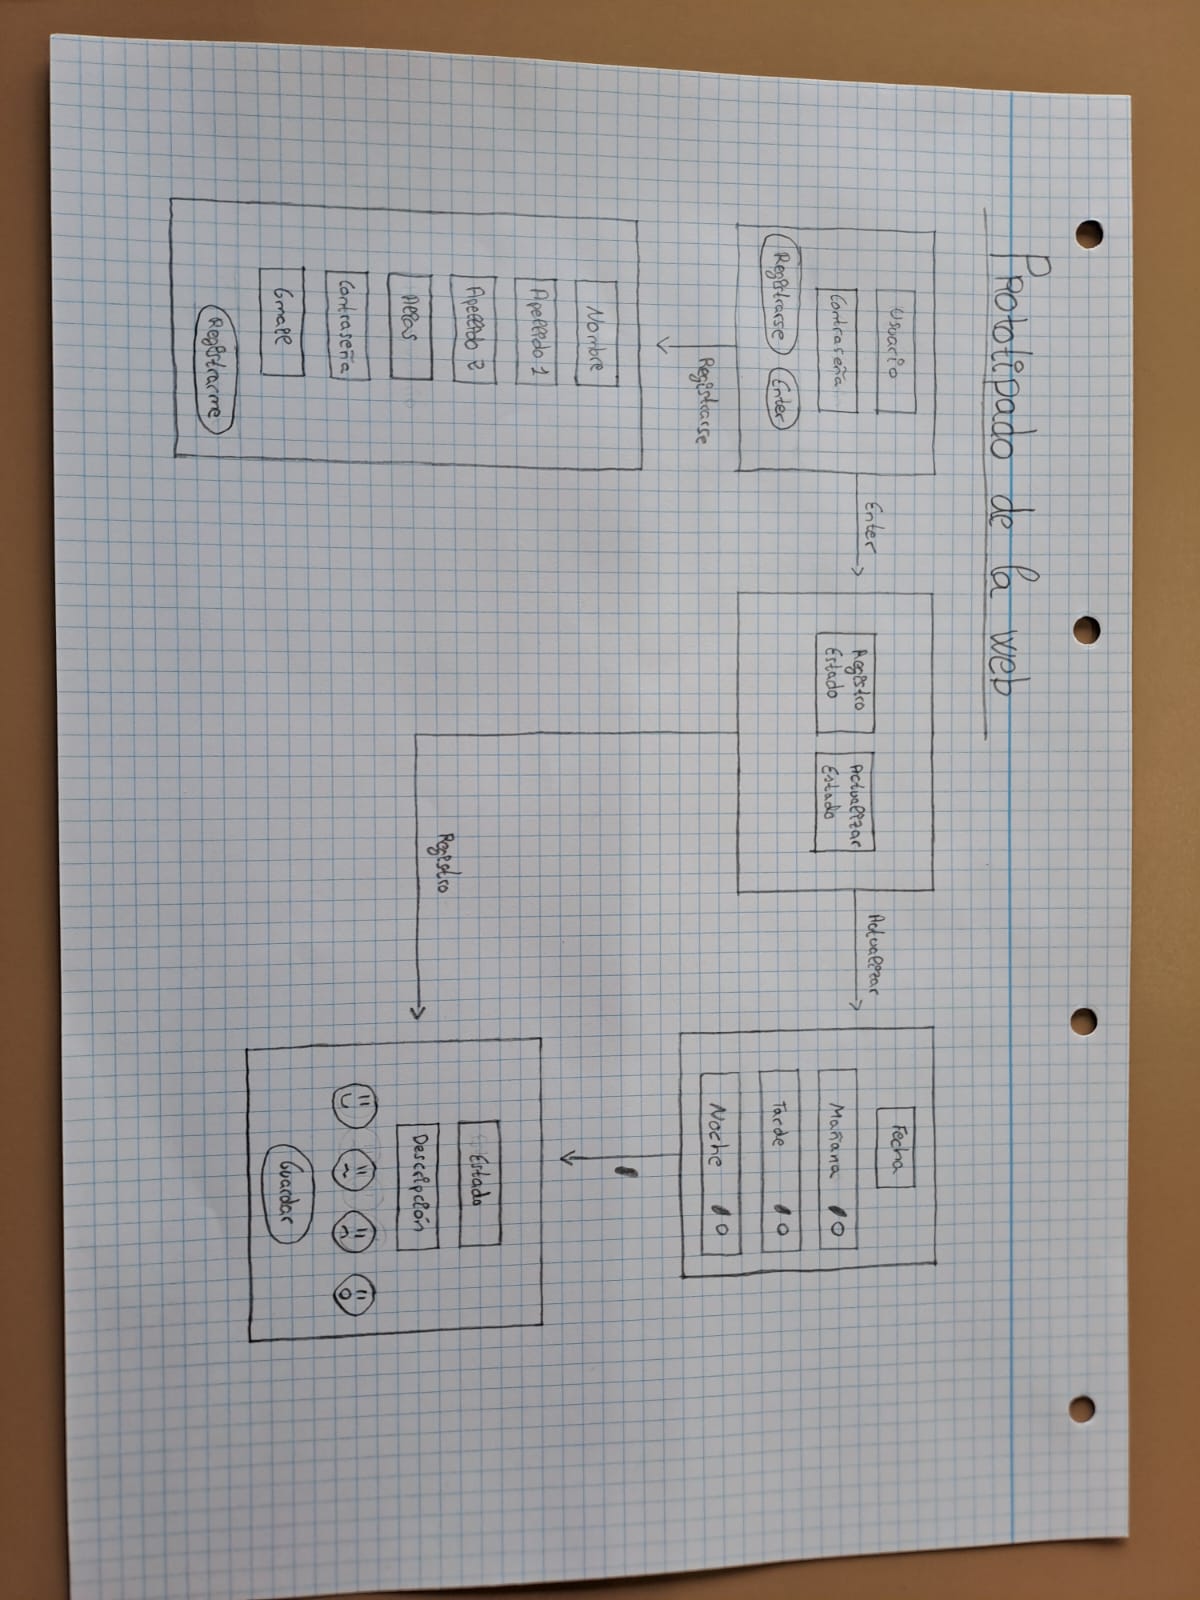 Prototipado de la web
Usuario
Contraseña
Registrarse
Enter
Enter
Registro
Estado
Actualizar
Estado
Actualizar
Fecha
Mañana
Tarde
Noche
Registrarse
Nombre
Apellido 1
Apellido 2
Alias
Contraseña
Gmail
Registrarme
Registro
Estado
Descripción
Guardar